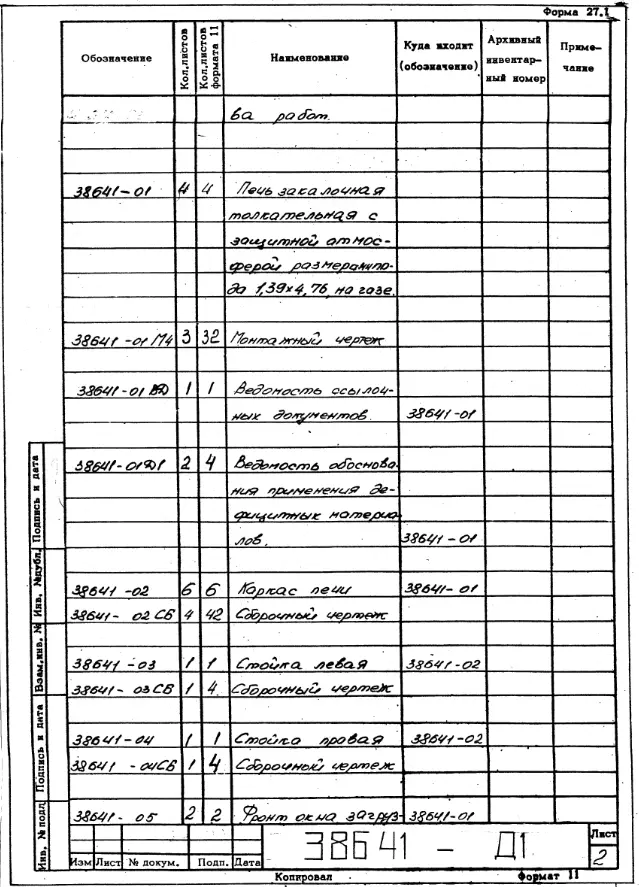 Форма 27.1
Обозначение Кол.листов Кол.листов формата 11 Наименование Куда входит (обозначение) Архивный инвентарный номер Примечание
ва работ.
38641-01 4 4 Печь закалочная
толкательная с
защитной атмос-
ферой размерами по-
да 1,39х4,76 на газе.
38641 -01 МЧ 3 32 Монтажный чертеж
38641-01 1 1 Ведомость ссылоч-
ных документов. 38641-01
38641-01Д1 2 4 Ведомость обоснова-
ния применения де-
фицитных материа-
лов. 38641 - 01
38641 -02 6 6 Каркас печи 38641- 01
38641- 02 СБ 4 42 Сборочный чертеж
38641 -03 1 1 Стойка левая 38641-02
38641- 03СБ 1 4 Сборочный чертеж
38641-04 1 1 Стойка правая 38641-02
38641 -04СБ 1 4 Сборочный чертеж
38641- 05 2 2 Фронт окна загруз- 38641-01
Инв. № подл. Подпись и дата Взам.инв. № Инв. № дубл. Подпись и дата
38641 - Д1
Лист
2
Изм Лист № докум. Подп. Дата
Копировал Формат 11